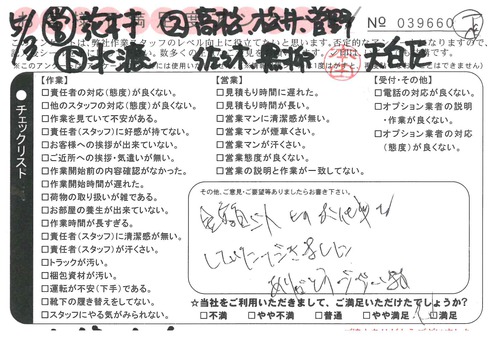 No 039660
【作業】
□責任者の対応(態度)が良くない。
□他のスタッフの対応(態度)が良くない。
□作業を見ていて不安がある。
□責任者(スタッフ)に好感が持てない。
□お客様への挨拶が出来ていない。
□ご近所への挨拶・気遣いが無い。
□作業開始前の内容確認がなかった。
□作業開始時間が遅れた。
□荷物の取り扱いが雑である。
□お部屋の養生が出来ていない。
□作業時間が長すぎる。
□責任者(スタッフ)に清潔感が無い。
□責任者(スタッフ)が汗くさい。
□トラックが汚い。
□梱包資材が汚い。
□運転が不安(下手)である。
□靴下の履き替えをしてない。
□スタッフにやる気がみられない。
【営業】
□見積もり時間に遅れた。
□見積もり時間が長い。
□営業マンに清潔感が無い。
□営業マンが煙草くさい。
□営業マンが汗くさい。
□営業態度が良くない。
□営業の説明と作業が一致してない。
【受付・その他】
□電話の対応が良くない。
□オプション業者の説明
・作業が良くない。
□オプション業者の対応
(態度)が良くない。
●チェックリスト
その他、ご意見・ご要望等ありましたらお書き下さい。
していただきました
ありがとうございます
☆当社をご利用いただきまして、ご満足いただけたでしょうか?
□不満 □やや不満 □普通 □やや満足 □満足